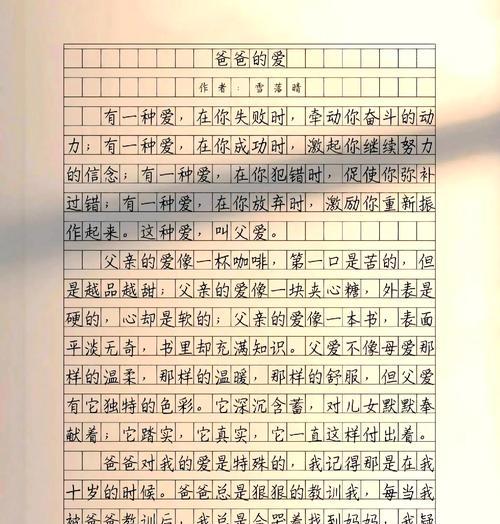 爸爸的爱
作者：雪落晴
有一种爱，在你失败时，牵动你奋斗的动
力；有一种爱，在你成功时，激起你继续努力
的信念；有一种爱，在你犯错时，促使你弥补
过错；有一种爱，在你放弃时，激励你重新振
作起来。这种爱，叫父爱。
父亲的爱像一杯咖啡，第一口是苦的，但
是越品越甜；父亲的爱像一块夹心糖，外表是
硬的，心却是软的；父亲的爱像一本书，表面
平淡无奇，书里却充满知识。父爱不像母爱那
样的温柔，那样的温暖，那样的舒服，但父爱
有它独特的色彩。它深沉含蓄，对儿女默默奉
献着；它踏实，它真实，它一直这样付出着。
爸爸对我的爱是特殊的，我记得那是在我
十岁的时候。爸爸总是狠狠的教训我，每当我
被爸爸教训后，我总会哭着找到妈妈，我疑